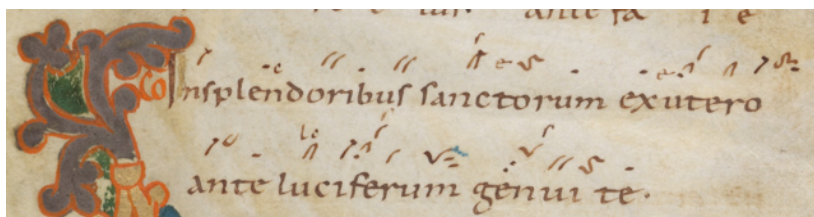 Insplendoribus sanctorum exutero
ante luciferum genui te.